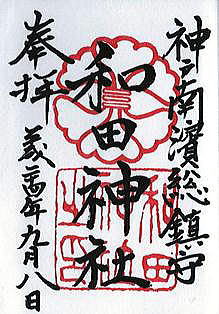 神戸南濱総鎮守
和田神社
奉拝
二十四年九月八日